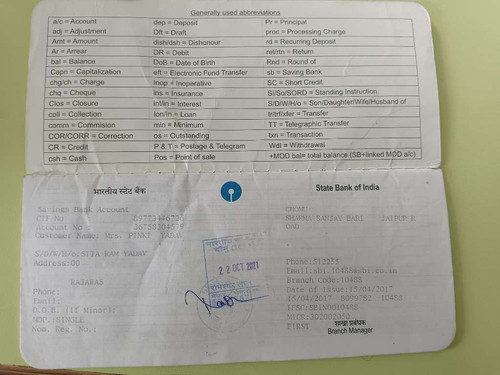 Generally used abbreviations
a/c = Account dep = Deposit Pr = Principal
adj = Adjustment Dft = Draft proc = Processing Charge
Amt = Amount dish/dsh = Dishonour rd = Recurring Deposit
Ar = Arrear DR = Debit ret/rtn = Return
bal = Balance DoB = Date of Birth Rnd = Round of
Capn = Capitalization eft = Electronic Fund Transfer sb = Saving Bank
chg/ch = Charge Inop = Inoperative SC = Short Credit
chq = Cheque ins = Insurance SI/So/SORD = Standing Instruction
Clos = Closure int/in = Interest S/D/W/H/o = Son/Daughter/Wife/Husband of
coll = Collection lon/ln = Loan tr/trf/xfer = Transfer
comm = Commission min = Minimum TT = Telegraphic Transfer
COR/CORR = Correction os = Outstanding txn = Transaction
CR = Credit P & T = Postage & Telegram Wdl = Withdrawal
csh = Cash Pos = Point of sale +MOD bal= total balance (SB+linked MOD a/c)
भारतीय स्टेट बैंक State Bank of India
Savings Bank Account
CIF No
Account No
Customer Name: Mrs. PINKI YADAV
S/D/W/H/o:SITA RAM YADAV
Address:00
Phone:
Email:
D.O.B. (If Minor):
MOP.:SINGLE
Nom. Reg. No.:
22 OCT 2021
SHARMA SANJAY HARI JAIPUR R
OAD
Phone:512255
Email:sbi.10488@sbi.co.in
Branch Code:10488
Date of Issue:15/04/2017
15/04/2017 8099782 10488
IFSC:SBIN0010488
MICR:302002050
FIRST
शाखा प्रबंधक
Branch Manager